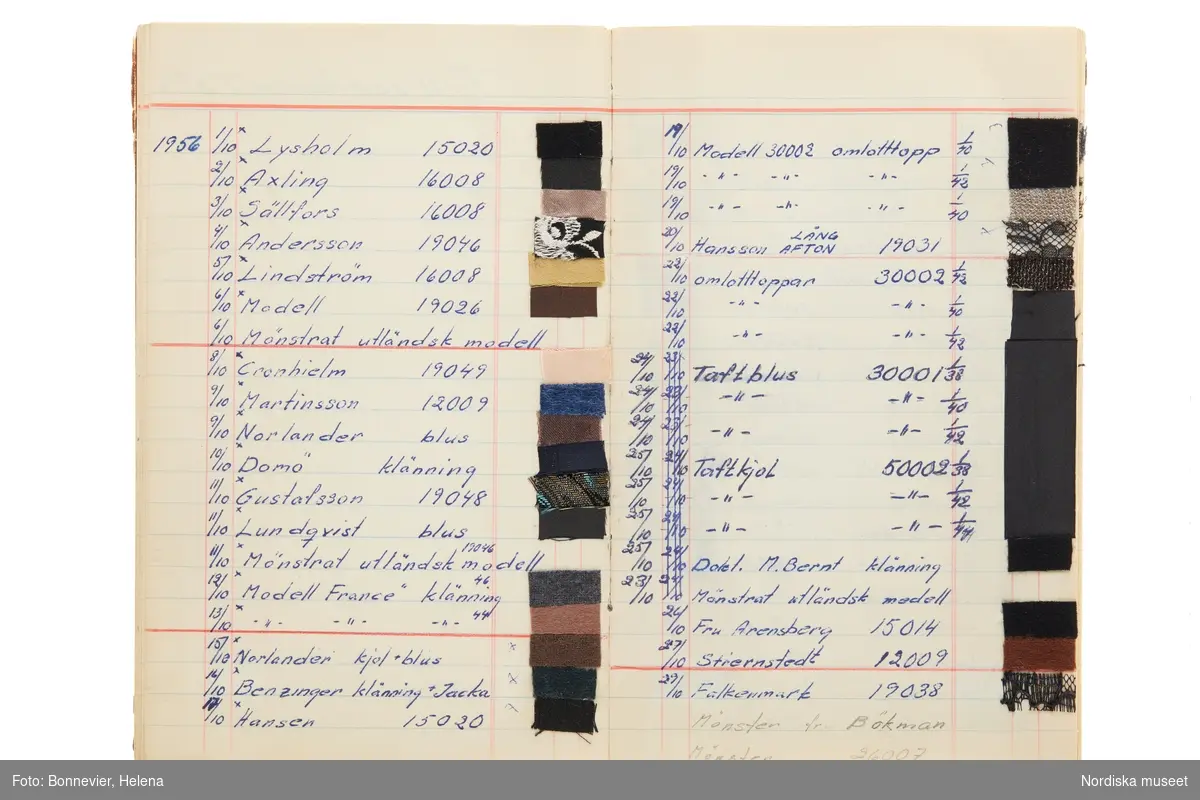 1956 1/10 x Lysholm 15020
2/10 x Axling 16008
3/10 x Sällfors 16008
4/10 x Andersson 19046
5/10 x Lindström 16008
6/10 x Modell 19026
6/10 Mönstrat utländsk modell
8/10 x Cronhielm 19049
9/10 x Martinsson 12009
9/10 x Norlander blus
10/10 x Domö klänning
11/10 x Gustafsson 19048
11/10 x Lundqvist blus
11/10 x Mönstrat utländsk modell 19046
12/10 x Modell France klänning 46
13/10 x -"- -"- -"- 44
15/10 x Norlander kjol+blus x
16/10 x Benzinger klänning+Jacka x
17/10 x Hansen 15020
19/10 Modell 30002 omlottopp 1/40
19/10 -"- -"- -"- 1/42
19/10 -"- -"- -"- 1/40
20/10 Hansson LÅNG AFTON 19031 x
22/10 omlottoppar 30002 1/42
22/10 -"- -"- 1/40
22/10 -"- -"- 1/42
24/10 23/10 Taftblus 30001 1/38
24/10 23/10 -"- -"- 1/40
24/10 23/10 -"- -"- 1/42
25/10 24/10 Taftkjol 50002 1/38
25/10 24/10 -"- -"- 1/42
25/10 24/10 -"- -"- 1/44
25/10 24/10 Dobl. M. Bernt klänning
23/10 24/10 Mönstrat utländsk modell
26/10 Fru Arensberg 15014
27/10 Stiernstedt 12009
29/10 Falkenmark 19038
Mönster fr. Bökman
Mönster 26007
Foto: Bonnevier, Helena
Nordiska museet